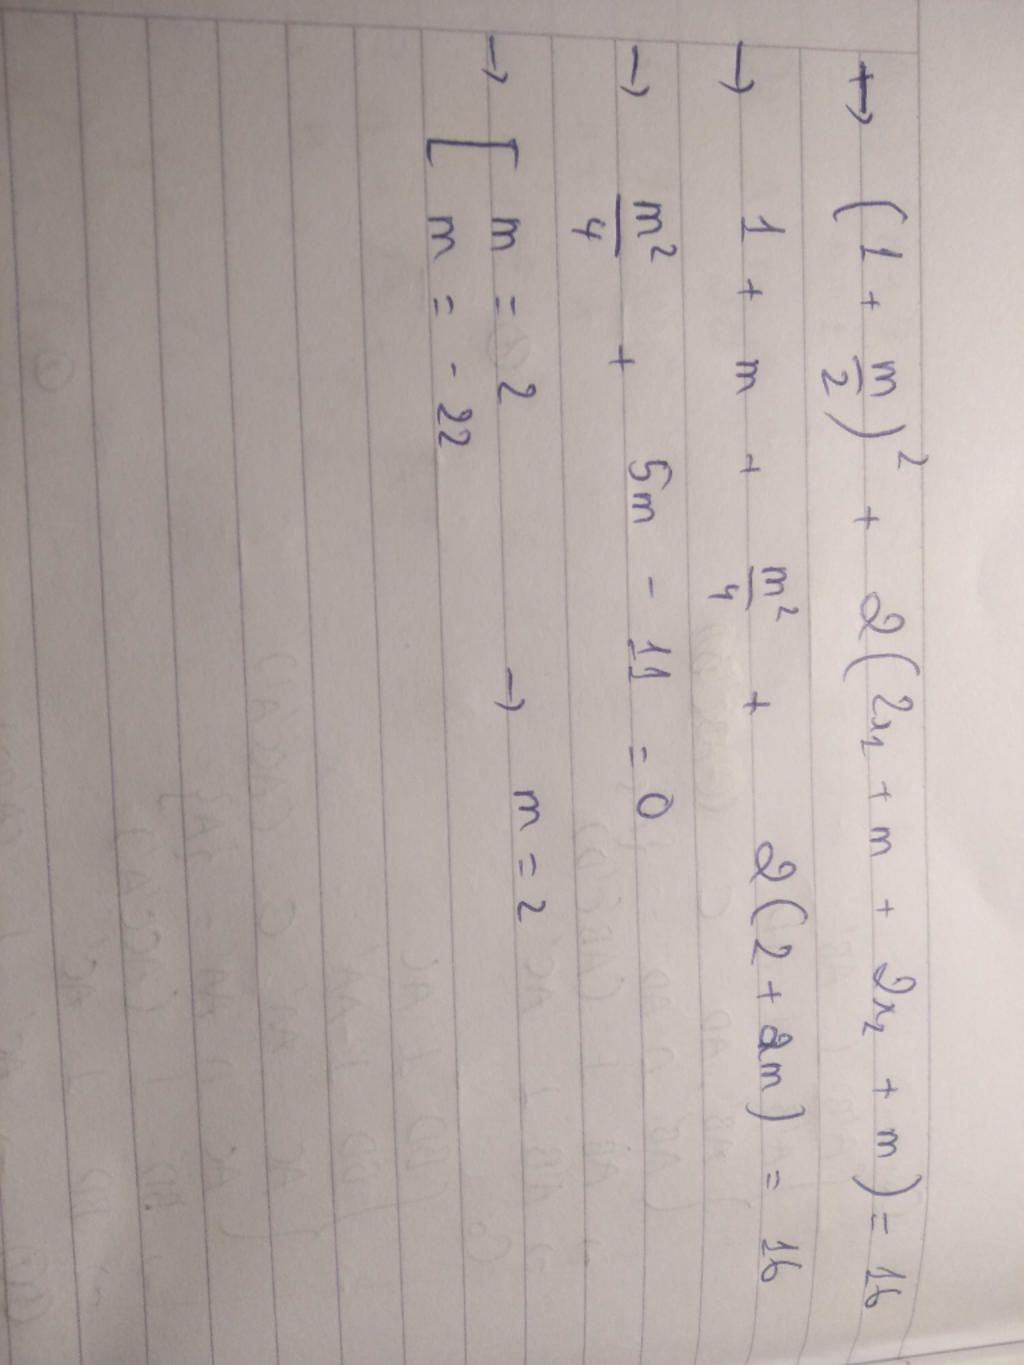 → (1 + m/2)² + 2(2x₁ + m + 2x₂ + m) = 16
→ 1 + m + m²/4 + 2(2 + 2m) = 16
→ m²/4 + 5m - 11 = 0
→ [ m = 2 → m = 2
m = -22